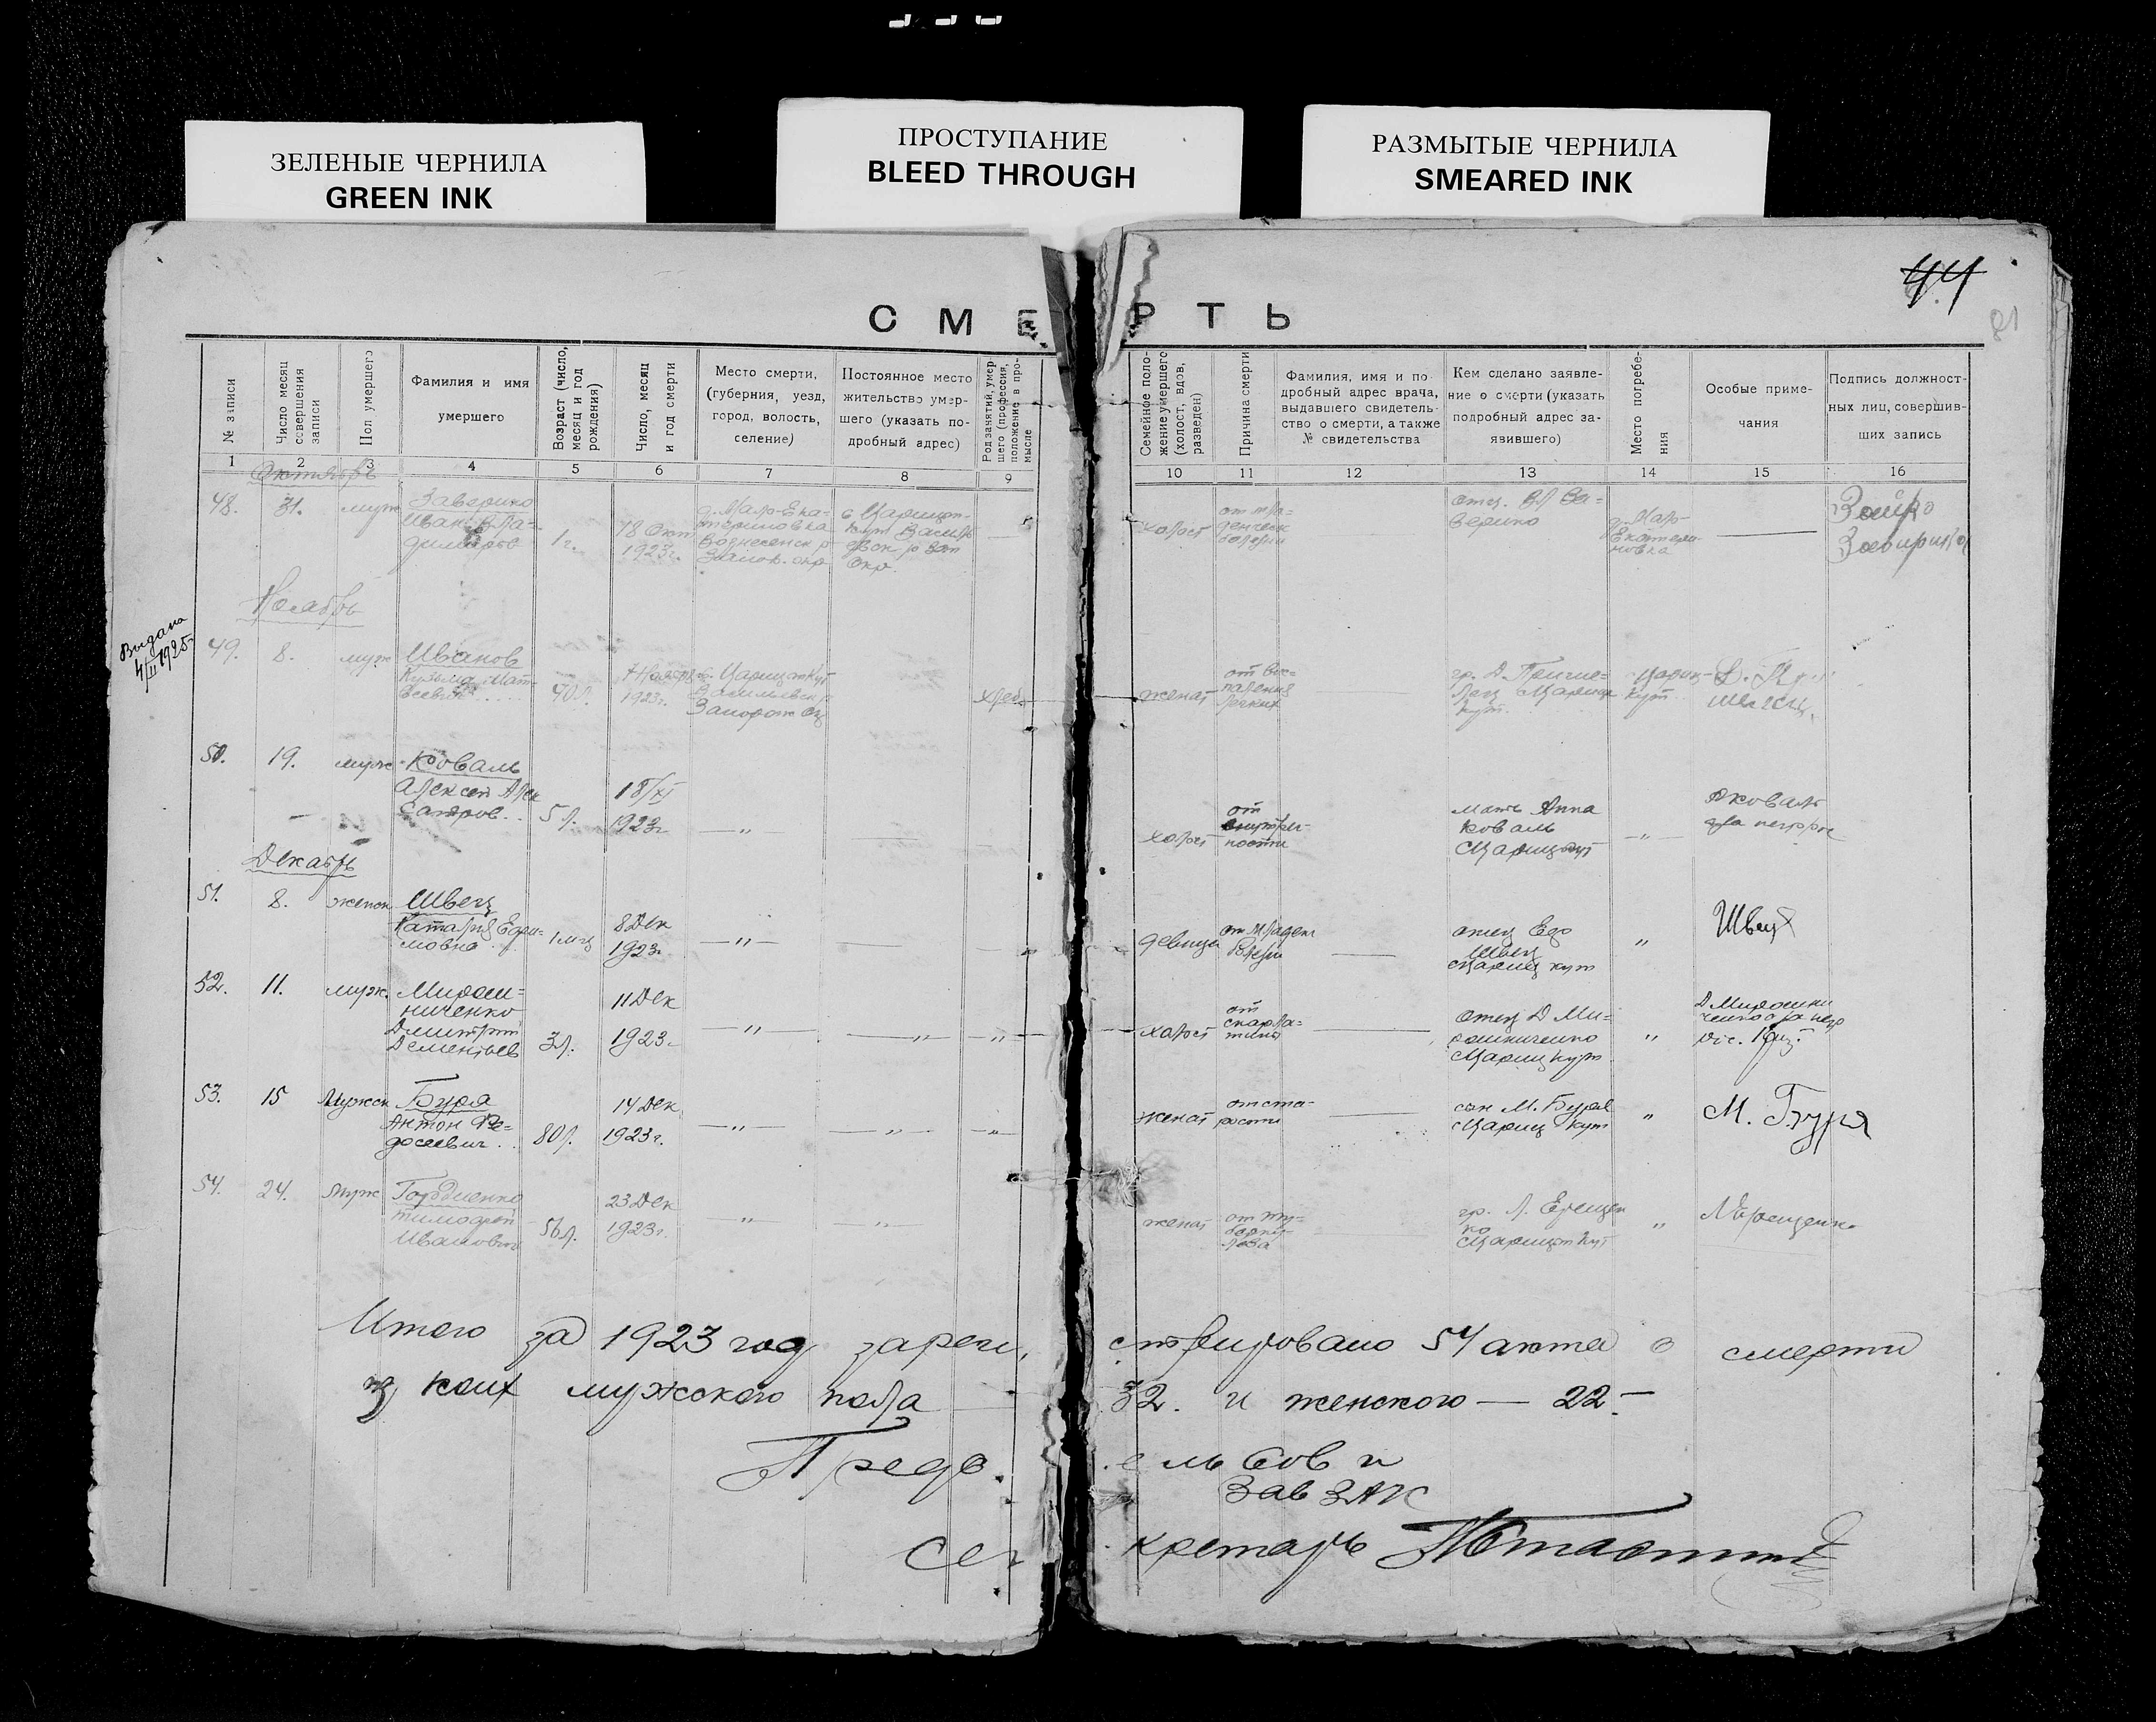 ЗЕЛЕНЫЕ ЧЕРНИЛА
GREEN INK
ПРОСТУПАНИЕ
BLEED THROUGH
РАЗМЫТЫЕ ЧЕРНИЛА
SMEARED INK
44
СМЕРТЬ
№ записи
Число месяц
совершения
записи
Пол умершего
Фамилия и имя
умершего
Возраст (число,
месяц и год
рождения)
Число, месяц
и год смерти
Место смерти,
(губерния, уезд,
город, волость,
селение)
Постоянное место
жительство умер-
шего (указать по-
дробный адрес)
Род занятий, умер-
шего (профессия,
положение в про-
мысле
Семейное поло-
жение умершего
(холост, вдов,
разведен)
Причина смерти
Фамилия, имя и по
дробный адрес врача,
выдавшего свидетель-
ство о смерти, а также
№ свидетельства
Кем сделано заявле-
ние о смерти (указать
подробный адрес за-
явившего)
Место погребе-
ния
Особые приме-
чания
Подпись должност-
ных лиц, совершив-
ших запись
1 2 3 4 5 6 7 8 9 10 11 12 13 14 15 16
Октябрь
48. 31. муж
Заверико
Иван Вла-
димиров
1 г.
18 Окт
1923 г.
д. Мало-Ека-
териновка
Вознесенск р
Запор. окр
с Царицын-
кут Василь
евск р Зап
Окр.
холост
от мла-
денческ
болезни
отец Вл За-
верико
д. Мало-
Екатери-
новка
Ноябрь
Выдана
4/II 1925
49. 8. муж
Иванов
Кузьма Мат-
веевич
40 л.
7 Ноябр
1923 г.
с. Царицын Кут
Васильевск р
Запорож Ок
хлеб
женат
от вос-
паления
легких
гр. Д.
Царицын
кут.
Цариц-
кут
50. 19. муж
Коваль
Алексей Алек
сандров.
5 л.
18/XI
1923 г
— „ —
холост
от
ности
мать Анна
Коваль
Царицкут
— „ —
Декабрь
51. 8. женск
Швец
Наталия Ефи-
мовна
1 мц
8 Дек
1923 г
— „ —
девица
от младен
болезни
отец Ефо
Швец
Цариц кут
„
Швец
52. 11. муж.
Мирош-
ниченко
Дмитрий
Дементьев
3 л.
11 Дек
1923
— „ —
— „ —
— „ —
холост
от
скарла-
тины
отец Д Ми-
рошниченко
Цариц кут
„
53. 15 Мужск
Буря
Антон Фе-
досеевич
80 л.
14 Дек
1923 г.
— „ —
— „ —
— „ —
женат
от ста-
рости
сын М. Буря
Цариц Кут
„
М. Буря
54. 24. Муж
Гордиенко
Тимофей
Иванович
56 л.
23 Дек
1923 г.
„
„
женат
от ту-
берку-
леза
гр. Л. Ерещен
ко
Царицын Кут
„
Итого за 1923 год зарегистрировано 54 акта о смерти
из коих мужского пола 32. и женского — 22. —
Предс. ельсов и
Зав ЗАК
Секретарь